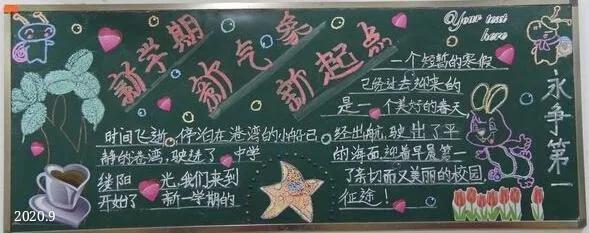 新学期
新气象
新起点
Your text
here
一个短暂的寒假
已经过去迎来的
是一个美好的春天
永争第一
时间飞逝，停泊在港湾的小船已经出航，驶出了平
静的港湾，驶进了 中学的海面，迎着早晨第一
缕阳 光，我们来到了亲切而又美丽的校园，
开始了 新一学期的征途！
2020.9